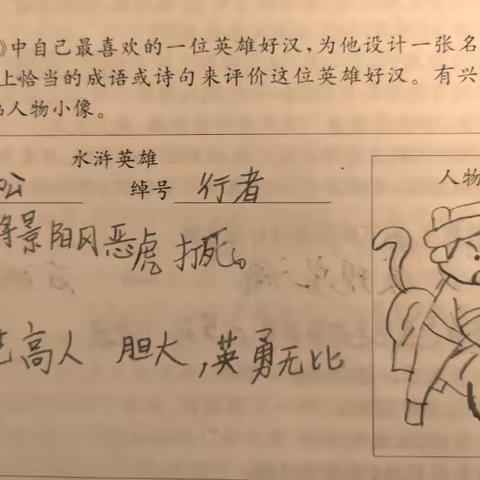 》中自己最喜欢的一位英雄好汉，为他设计一张名
上恰当的成语或诗句来评价这位英雄好汉。有兴
人物小像。
水浒英雄
松 绰号 行者 人物
将景阳冈恶虎打死。
艺高人 胆大，英勇无比